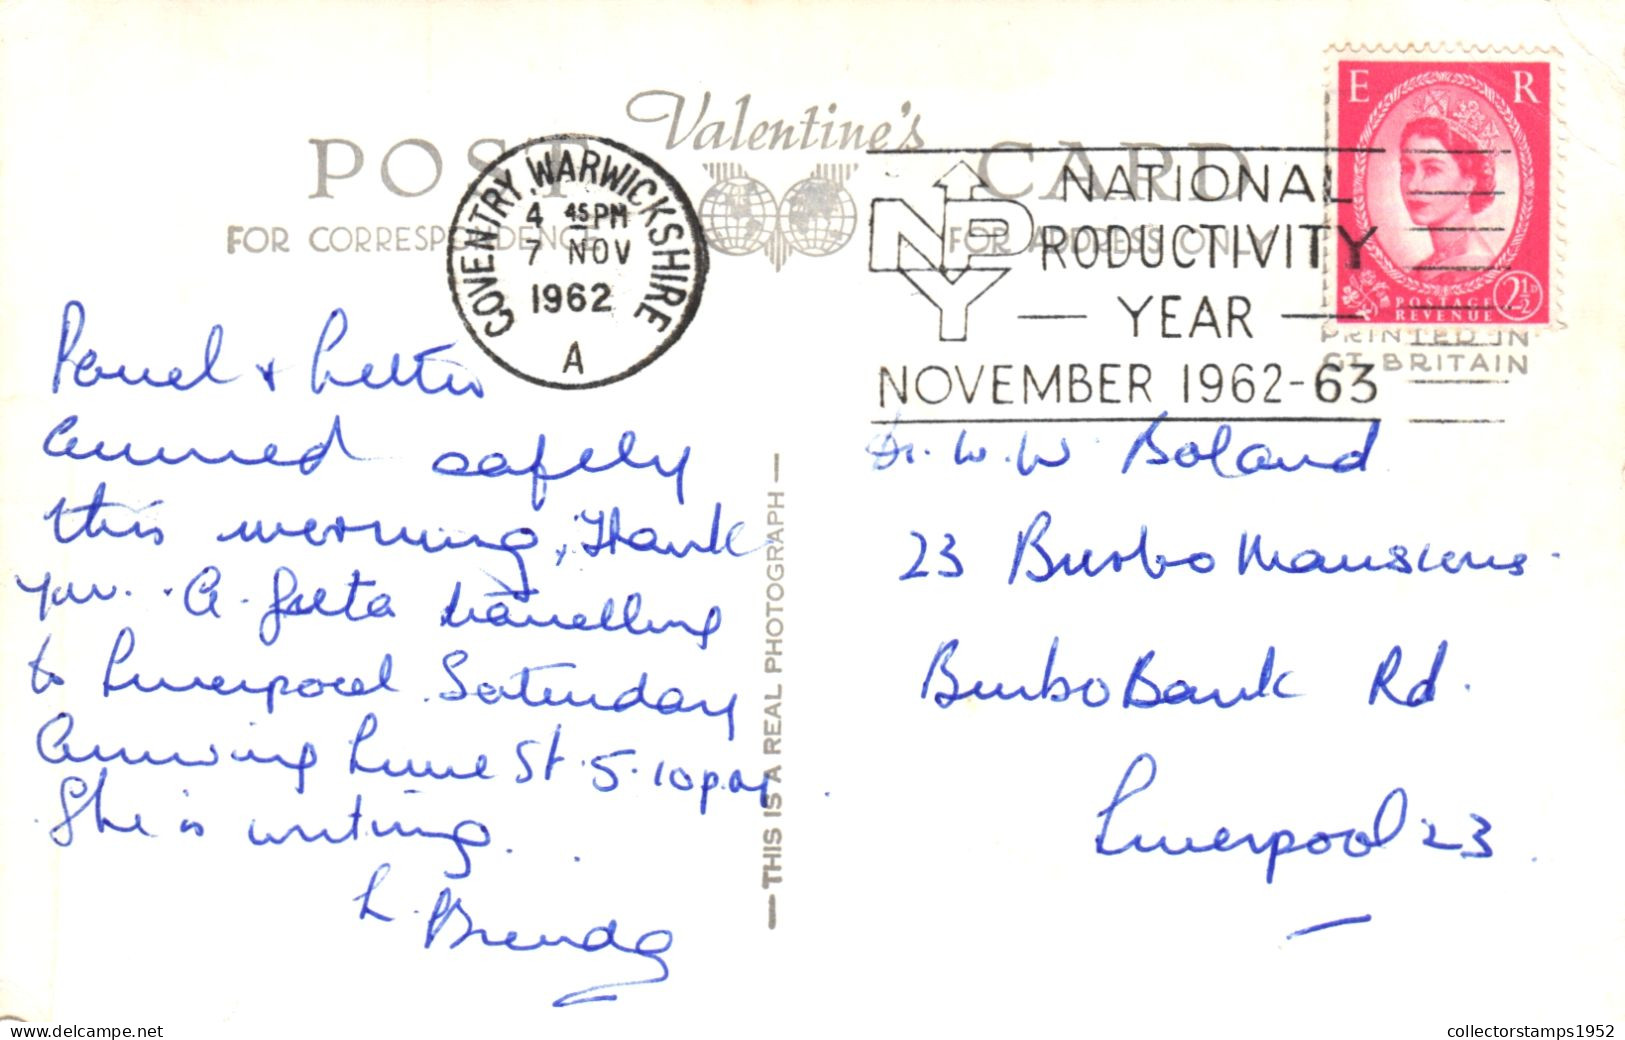 Valentine's
POST CARD
FOR CORRESPONDENCE
FOR ADDRESS ONLY
COVENTRY, WARWICKSHIRE
4 45 PM
7 NOV
1962
A
NPY
NATIONAL
PRODUCTIVITY
— YEAR —
NOVEMBER 1962-63
E R
POSTAGE
REVENUE
2½D
PRINTED IN
GT BRITAIN
Parcel & Letter
arrived safely
this morning, Thank
you. A. Greta travelling
to Liverpool Saturday
Arriving Lime St. 5.10pm
She is writing.
L. Brenda
— THIS IS A REAL PHOTOGRAPH —
Dr. W. W. Boland
23 Burbo Mansions
Burbo Bank Rd.
Liverpool 23
collectorstamps1952